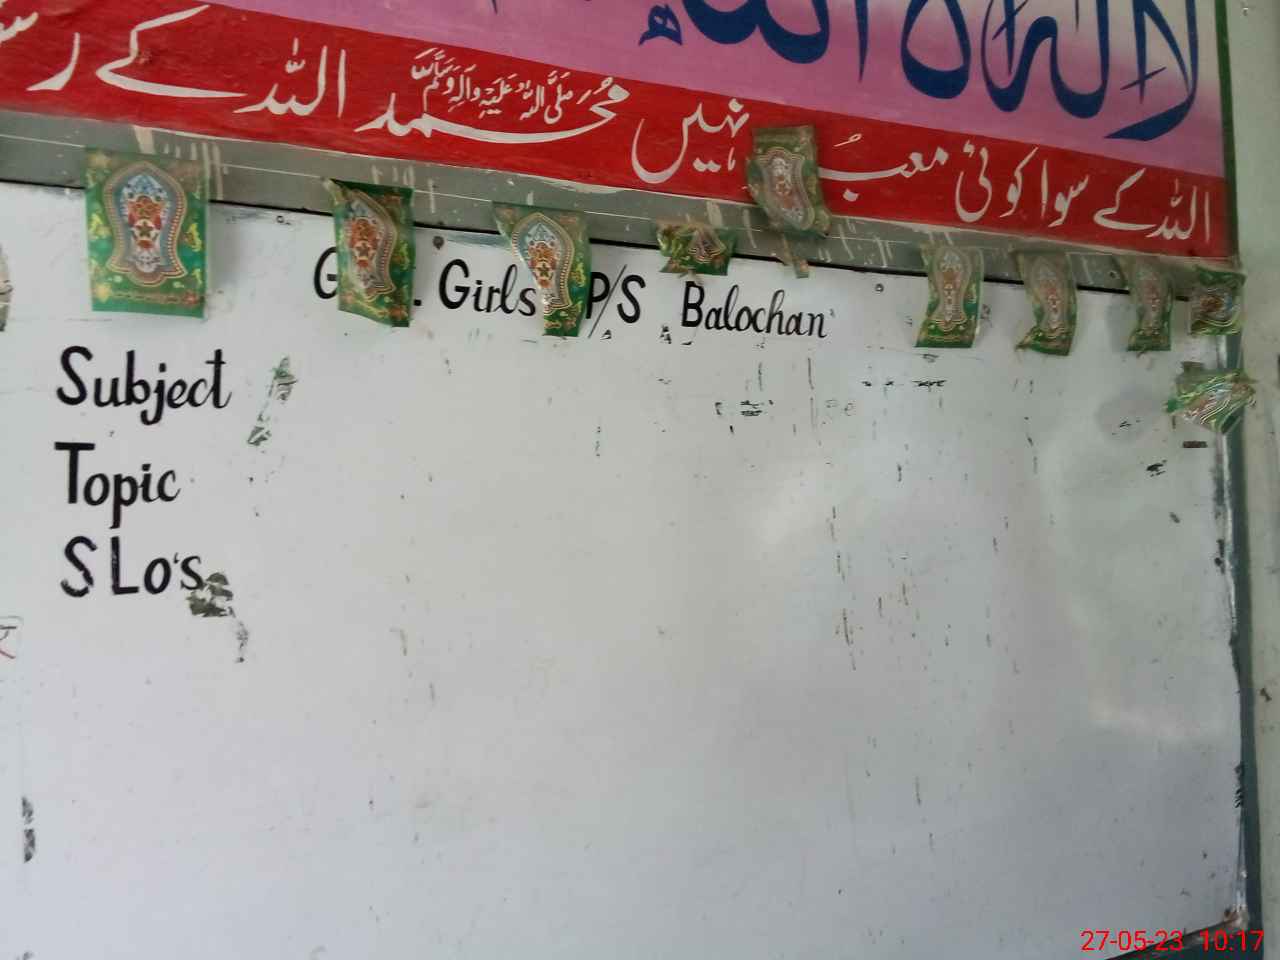 لا الہ الا اللہ
اللہ کے سوا کوئی معبُ نہیں مُحَمد صَلَّی اللہُ عَلَیْہِ وَاٰلِہٖ وَسَلَّمَ اللہ کے رسو
Girls P/S Balochan
Subject
Topic
SLo's
27-05-23 10:17